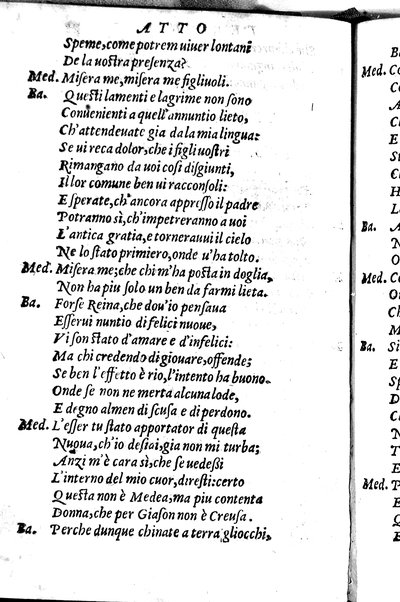 ATTO
Speme, come potrem uiuer lontani
De la uostra presenza?
Med. Misera me, misera me figliuoli.
Ba. Questi lamenti e lagrime non sono
Conuenienti a quell'annuntio lieto,
Ch'attendeuate gia da la mia lingua:
Se ui reca dolor, che i figli uostri
Rimangano da uoi cosi disgiunti,
Il lor comune ben ui racconsoli:
E sperate, ch'ancora appresso il padre
Potranno sì, ch'impetreranno a uoi
L'antica gratia, e torneraui il cielo
Ne lo stato primiero, onde u'ha tolto.
Med. Misera me; che chi m'ha posta in doglia,
Non ha piu solo un ben da farmi lieta.
Ba. Forse Reina, che dou'io pensaua
Esserui nuntio di felici nuoue,
Vi son stato d'amare e d'infelici:
Ma chi credendo di giouare, offende;
Se ben l'effetto è rio, l'intento ha buono.
Onde se non ne merta alcuna lode,
E degno almen di scusa e di perdono.
Med. L'esser tu stato apportator di questa
Nuoua, ch'io destai, gia non mi turba;
Anzi m'è cara sì, che se uedessi
L'interno del mio cuor, diresti: certo
Questa non è Medea, ma piu contenta
Donna, che per Giason non è Creusa.
Ba. Perche dunque chinate a terra gliocchi,